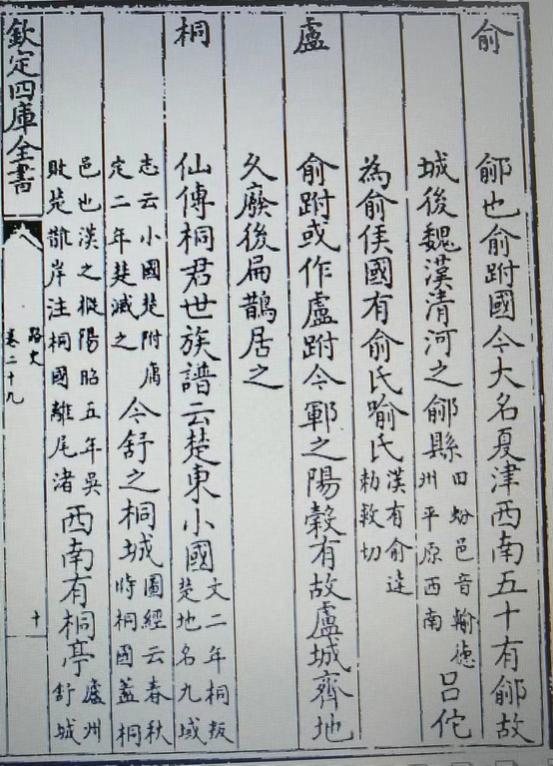 俞 鄃也俞跗國今大名夏津西南五十有鄃故
城後魏漢清河之鄃縣田蚡邑音輸德州平原西南吕佗
為俞侯國有俞氏喻氏漢有俞連勅救切
盧 俞跗或作盧跗今鄆之陽穀有故盧城齊地
久廢後扁鵲居之
桐 仙傳桐君世族譜云楚東小國文二年桐叛楚地名九域
志云小國楚附庸定二年楚滅之今舒之桐城圖經云春秋時桐國蓋桐
邑也漢之樅陽昭五年吳敗楚䧿岸注桐國離尾渚西南有桐亭廬州舒城
欽定四庫全書
路史
卷二十九
十